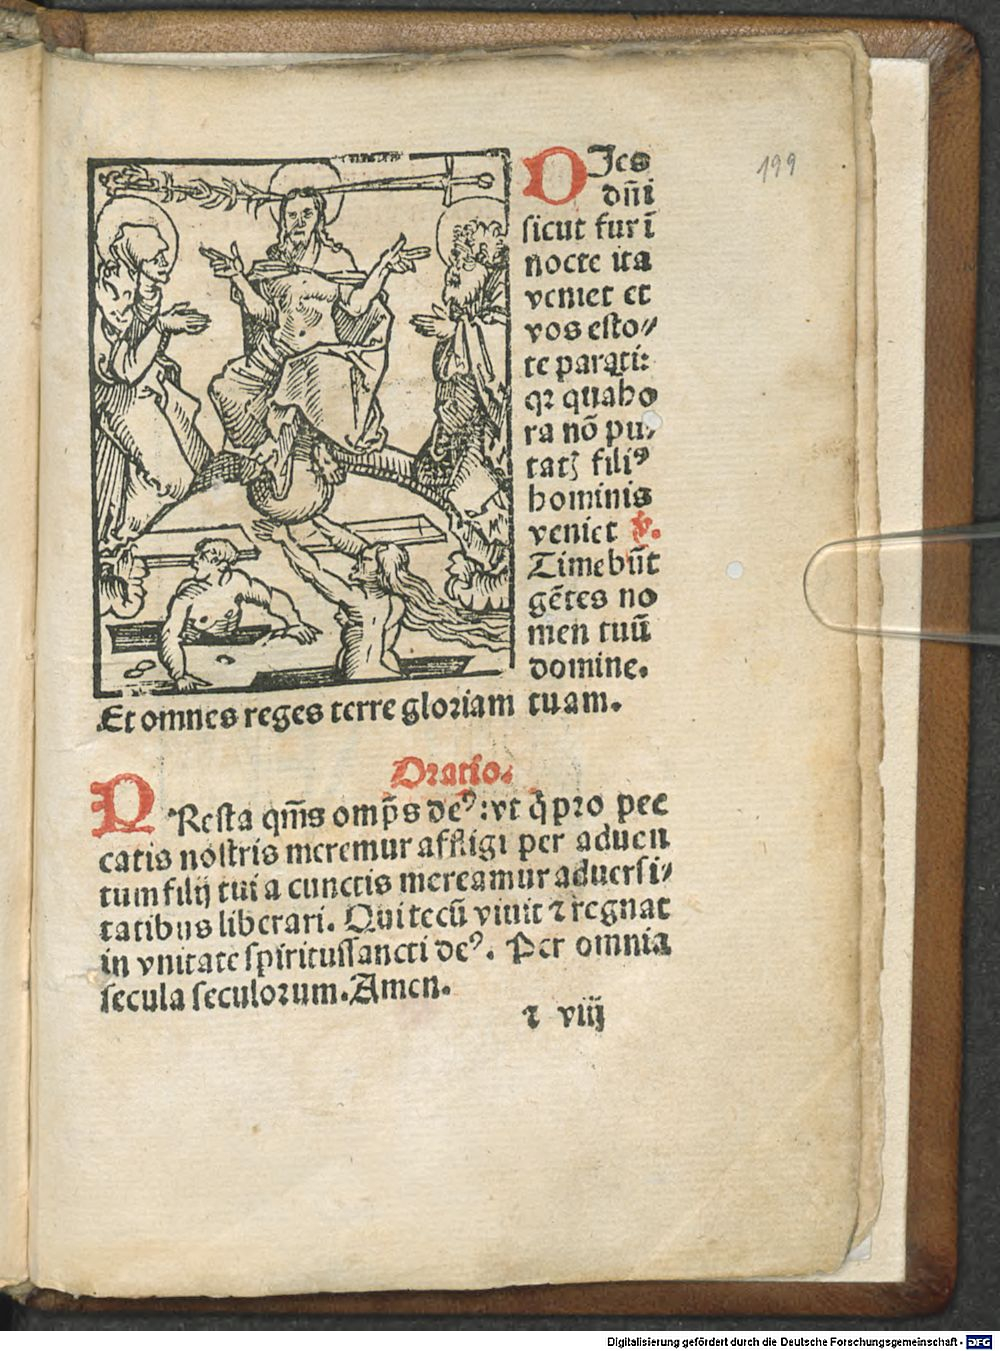 199
DIes
dn̄i
sicut fur ī
nocte ita
veniet et
vos esto⸗
te parati:
qꝛ qua ho
ra nō pu⸗
tatꝫ filiꝰ
hominis
veniet ℣.
Timebūt
gētes no
men tuū
domine.
Et omnes reges terre gloriam tuam.
Oratio.
PResta qm̄s omp̄s deꝰ: vt q̄ pro pec
catis nostris meremur affligi per aduen
tum filij tui a cunctis mereamur aduersi⸗
tatibus liberari. Qui tecū viuit ⁊ regnat
in vnitate spiritussancti deꝰ. Per omnia
secula seculorum. Amen.
⁊ viij
Digitalisierung gefördert durch die Deutsche Forschungsgemeinschaft - DFG